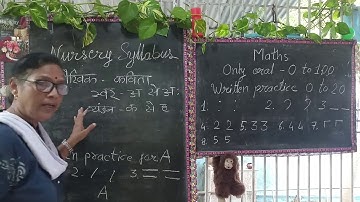 Nursery Syllabus
कविता
स्वर - अ से अः
व्यंजन - क से ह
practice for A
2. / / 3 = =
A
Maths
Only oral - 0 to 100
Written practice 0 to 20
1. : : 2. 2 2 3 _ _
4. 2 2 5. 3 3 6. 4 4 7.
8. 5 5